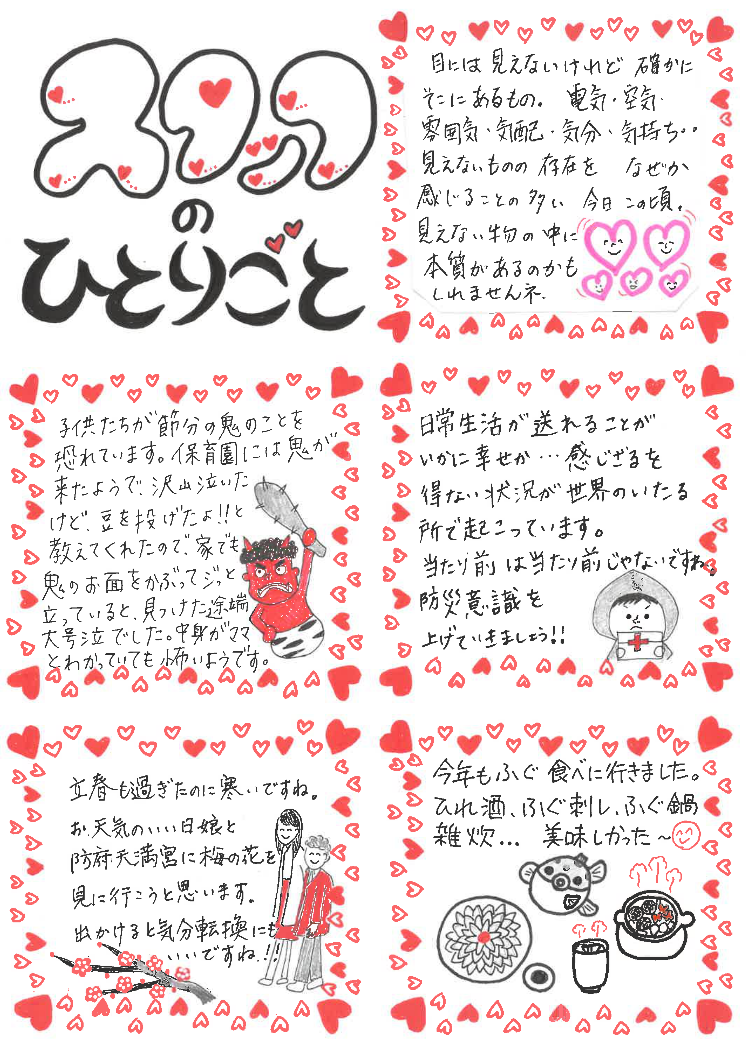 スタッフ
の
ひとりごと
目には見えないけれど 確かに
そこにあるもの。 電気・空気・
雰囲気・気配・気分・気持ち・・
見えないものの 存在を なぜか
感じることの多い 今日この頃。
見えない物の中に
本質があるのかも
しれませんネ.
子供たちが節分の鬼のことを
恐れています。保育園には鬼が
来たようで、沢山泣いた
けど、豆を投げたよ!!と
教えてくれたので、家でも
鬼のお面をかぶってジッと
立っていると、見つけた途端
大号泣でした。中身がママ
とわかっていても怖いようです。
日常生活が送れることが
いかに幸せか…感じざるを
得ない状況が世界のいたる
所で起こっています。
当たり前は当たり前じゃないですね。
防災意識を
上げていきましょう!!
立春も過ぎたのに寒いですね。
お天気のいい日娘と
防府天満宮に梅の花を
見に行こうと思います。
出かけると気分転換にも
いいですね!!
今年もふぐ食べに行きました。
ひれ酒、ふぐ刺し、ふぐ鍋
雑炊... 美味しかった~